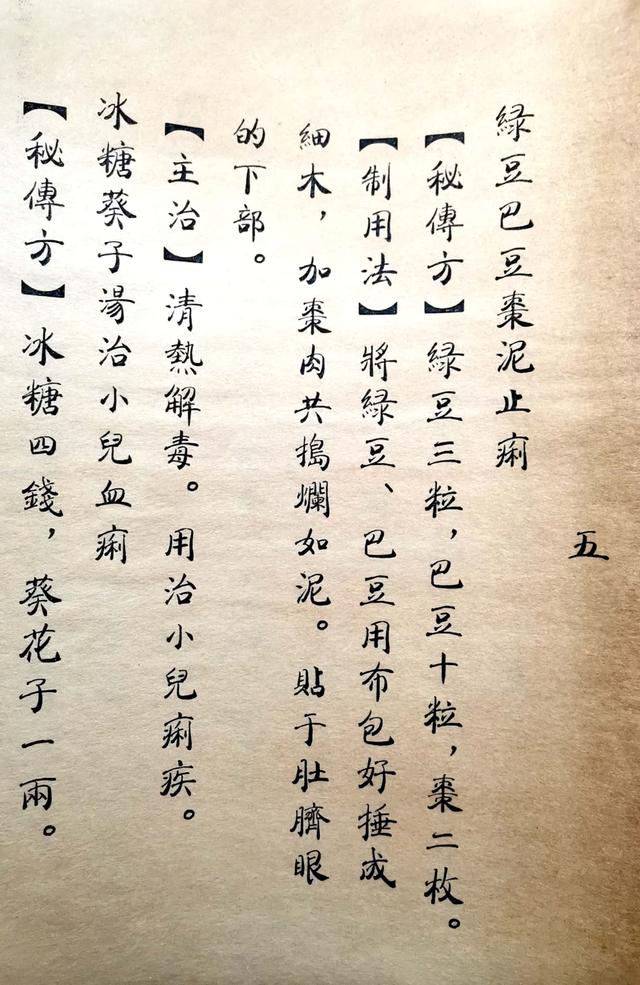 五
綠豆巴豆棗泥止痢
【秘傳方】綠豆三粒，巴豆十粒，棗二枚。
【制用法】將綠豆、巴豆用布包好捶成
細木，加棗肉共搗爛如泥。貼于肚臍眼
的下部。
【主治】清熱解毒。用治小兒痢疾。
冰糖葵子湯治小兒血痢
【秘傳方】冰糖四錢，葵花子一兩。